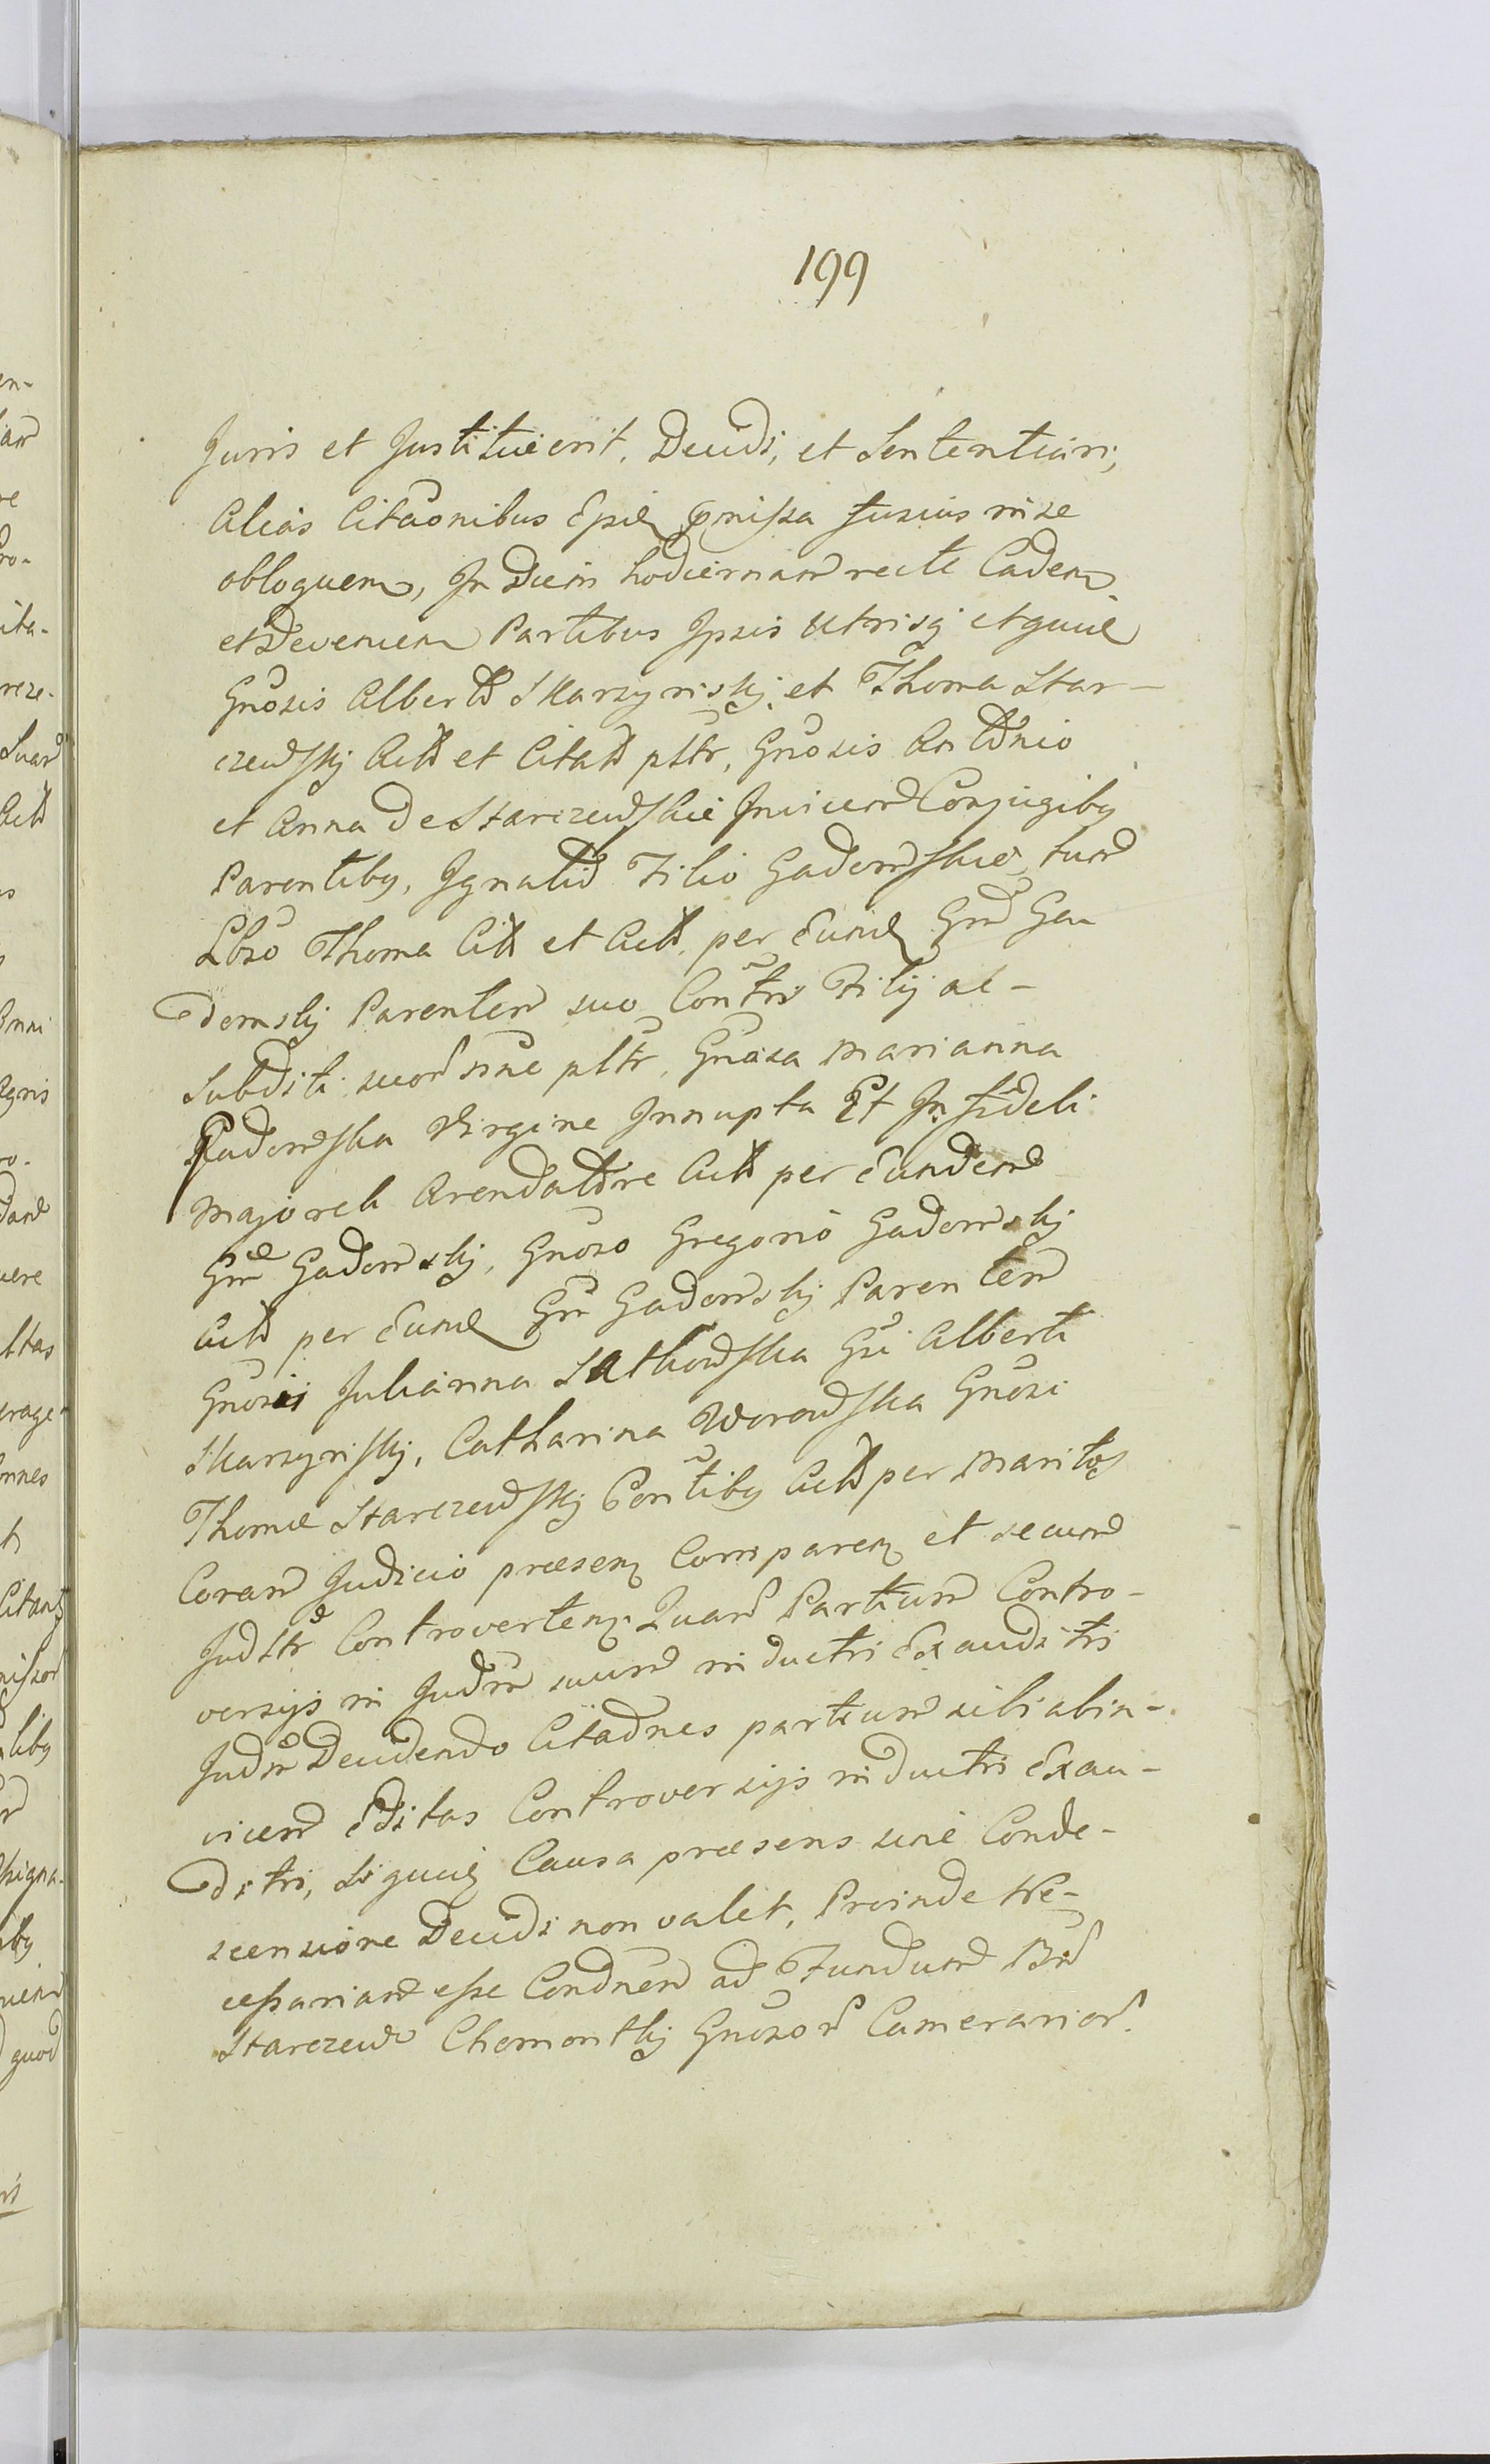 199
Juris et Justitiae erit. Decidi, et Sententiari,
Alias Citãonibus Epõe pmissa fusius in se
obloquen, In Diem hodiernam recte Caden
et Devenien Partibus Ipsis Utrisq et quide
Gnõsis Alberto Skarzynskj et Thoma Star-
czewskj Actõ et Citatõ psltr, Gnõsis Antonio
et Anna De Starczewskie Invicem Conjugiby
Parentiby, Ignatio Filio Gadomskie, tum
Lbso Thoma Citõ et Actõ per Eund Gnm Ga-
domskj Parentem suo Contris Filij ac
Subditi suor noe psltr, Gnõsa Marianna
Gadomska Virgine Innupta Et Infideli
Majorek Arendatore Actõ per Eundem
Gnm Gadomskj, Gnõso Gregorio Gadomskj
Actõ per Eund Gnm Gadomskj Parentem
Gnõsis Julianna Sutkowska Gsi Alberti
Skarzynskj, Catharina Worowska Gnõsi
Thomae Starczewskj Contiby Actõ per Maritos
Coram Judicio praesen Comparen et secum
Judltr Controverten Quar Partium Contro-
versijs in Judm suum inductis Exauditis
Judm Decidendo Citaõnes partium sibi abin-
vicem Editas Controversijs inductis Exau-
ditis, Siquid Causa praesens sine Conde-
scensione Decidi non valet, Proinde Ne-
cessariam esse Condnem ad Fundum Bnor
Starczewo Chomontkj Gnõsor Camerarior.